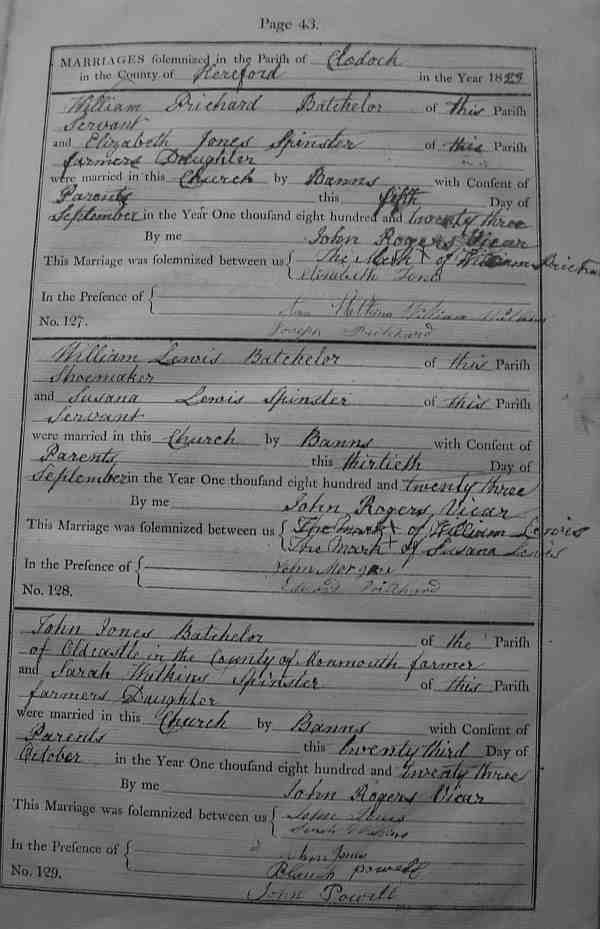 Page 43.
MARRIAGES solemnized in the Parish of Clodock
in the County of Hereford in the Year 1823
William Prichard Batchelor of this Parish
Servant
and Elizabeth Jones Spinster of this Parish
farmers Daughter
were married in this Church by Banns with Consent of
Parents this fifth Day of
September in the Year One thousand eight hundred and twenty three
By me John Rogers Vicar
This Marriage was solemnized between us { The Mark + of William Prichard
Elizabeth Jones
In the Presence of { Watkins William Watkins
No. 127. Joseph Prichard
William Lewis Batchelor of this Parish
Shoemaker
and Susana Lewis Spinster of this Parish
Servant
were married in this Church by Banns with Consent of
Parents this thirtieth Day of
September in the Year One thousand eight hundred and twenty three
By me John Rogers Vicar
This Marriage was solemnized between us { The Mark + of William Lewis
The Mark + of Susana Lewis
In the Presence of { John Morgan
No. 128. Edward
John Jones Batchelor of the Parish
of Oldcastle in the County of Monmouth farmer
and Sarah Watkins Spinster of this Parish
farmers Daughter
were married in this Church by Banns with Consent of
Parents this twenty third Day of
October in the Year One thousand eight hundred and twenty three
By me John Rogers Vicar
This Marriage was solemnized between us { John Jones
Sarah Watkins
In the Presence of { Jones
No. 129. Blanch Powell
John Powell